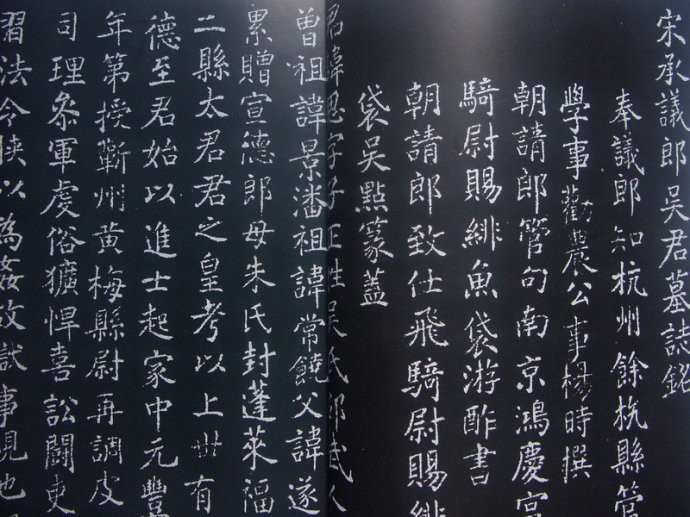 宋承議郎吳君墓誌銘
奉議郎知杭州餘杭縣管
學事勸農公事楊時撰
朝請郎管句南京鴻慶宮
騎尉賜緋魚袋游酢書
朝請郎致仕飛騎尉賜緋
袋吳點篆蓋
君諱思字子正姓吳氏邵武人
曾祖諱景潘祖諱常饒父諱遂
累贈宣德郎母朱氏封蓬萊福
二縣太君君之皇考以上丗有
德至君始以進士起家中元豐
年第授蘄州黃梅縣尉再調皮
司理叅軍虔俗獷悍喜訟鬪吏
習法令挾以為姦故試事視也